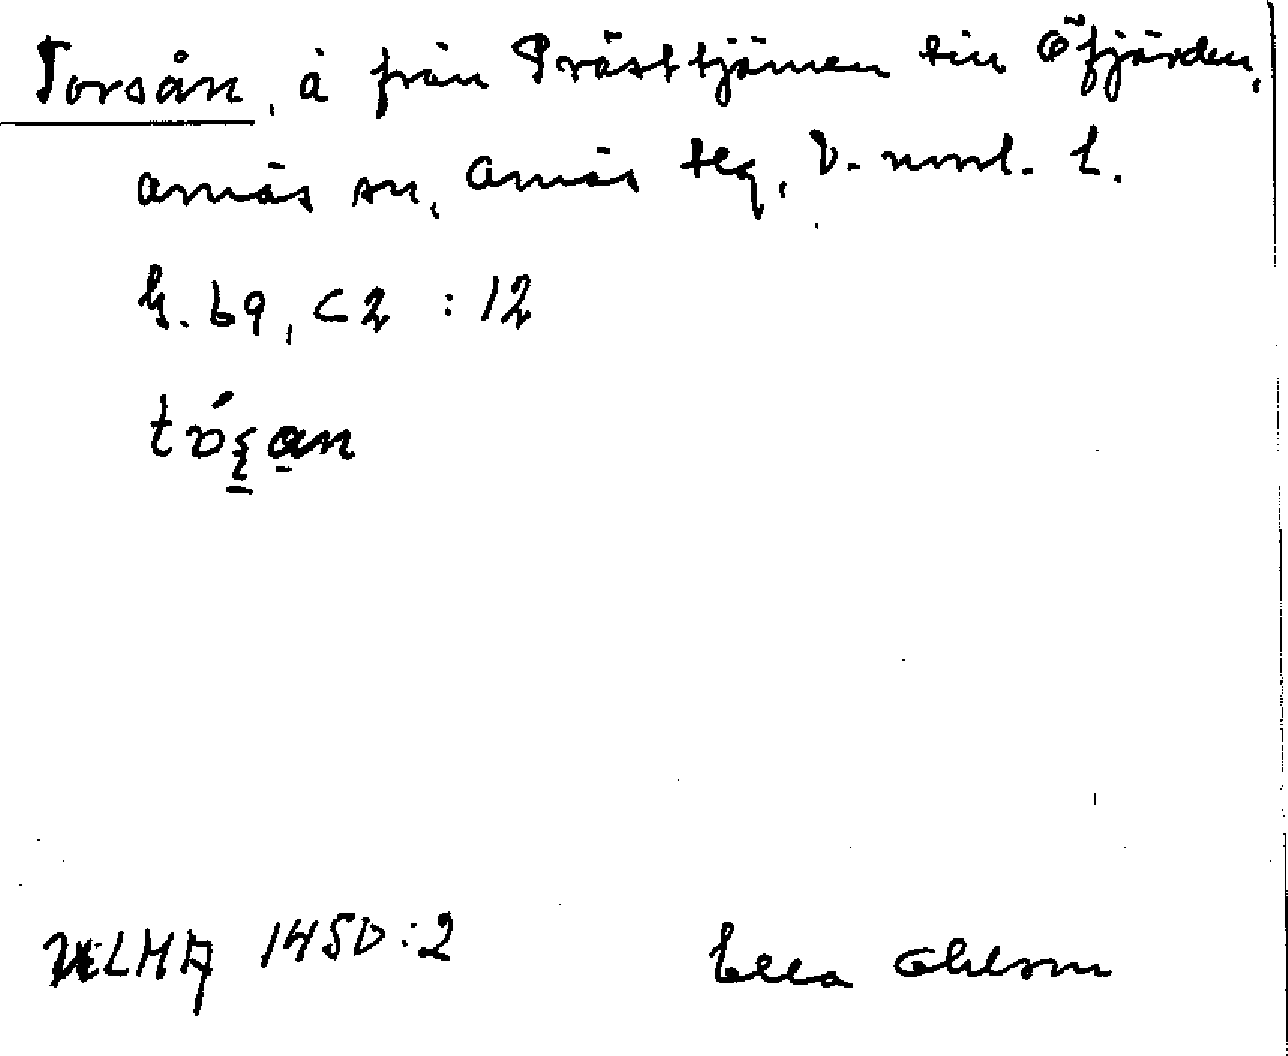 Torsån, å från Prästtjärnen till Öfjärden,
Arnäs sn, Arnäs tlg, V. norrl. l.
k. 69, C2 : 12
tóʂan
ULMA 1450:2 Ella Ohlson